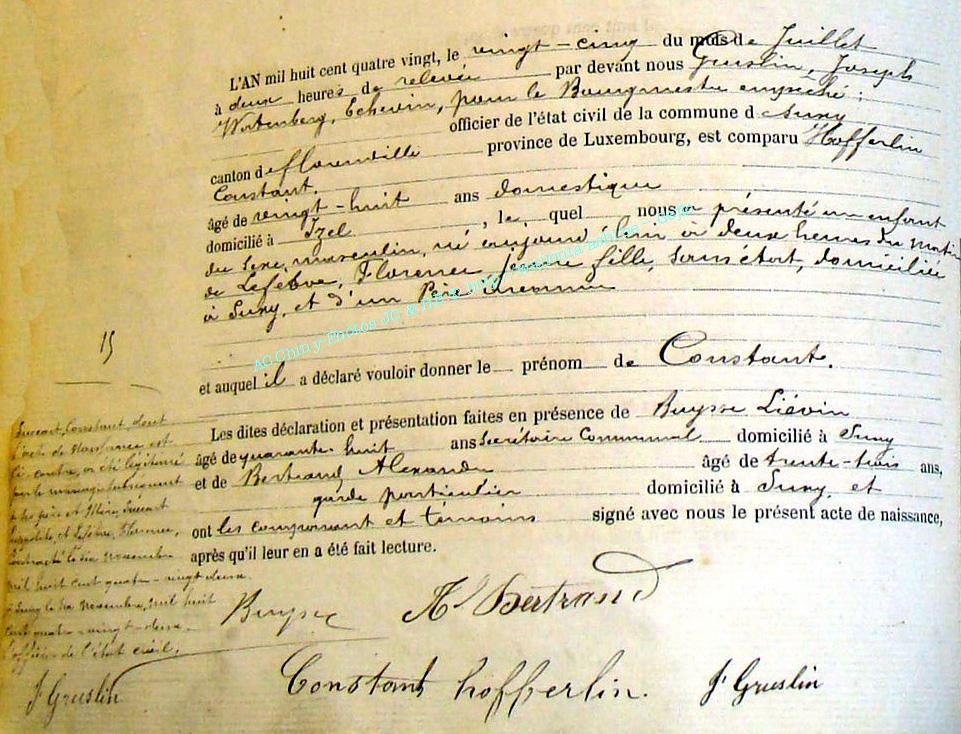 L'AN mil huit cent quatre vingt, le vingt-cinq du mois de Juillet
à deux heures de relevée par devant nous Gruslin, Joseph
Echevin, pour le Bourgmestre empêché ;
officier de l'état civil de la commune d Suny
canton de Florenville province de Luxembourg, est comparu Hofferlin
Constant.
âgé de vingt-huit ans domestique
domicilié à Izel , le quel nous a présenté un enfant
du sexe masculin, né aujourd'hui à deux heures du matin
de Lefebve, Florence jeune fille, sans état, domiciliée
à Suny, et d'un Père inconnu
AC Chiny-Photos JC &
15
et auquel il a déclaré vouloir donner le prénom de Constant.
Les dites déclaration et présentation faites en présence de Buysse Liévin
âgé de quarante huit ans Secrétaire Communal domicilié à Suny
et de Bertrand, Alexandre âgé de trente-trois ans,
garde particulier domicilié à Suny, et
ont les comparant et témoins signé avec nous le présent acte de naissance,
après qu'il leur en a été fait lecture.
Constant, dont
l'acte de naissance est
ci contre, a été légitimé
par le mariage subséquent
père et Mère,
et Lefebve, Florence,
contracté le six novembre
mil huit cent quatre-vingt deux.
à Suny le novembre, mil huit
cent quatre-vingt-deux.
L'officier de l'état civil,
J Gruslin
Buysse Al Bertrand
Constant hofferlin. J Gruslin